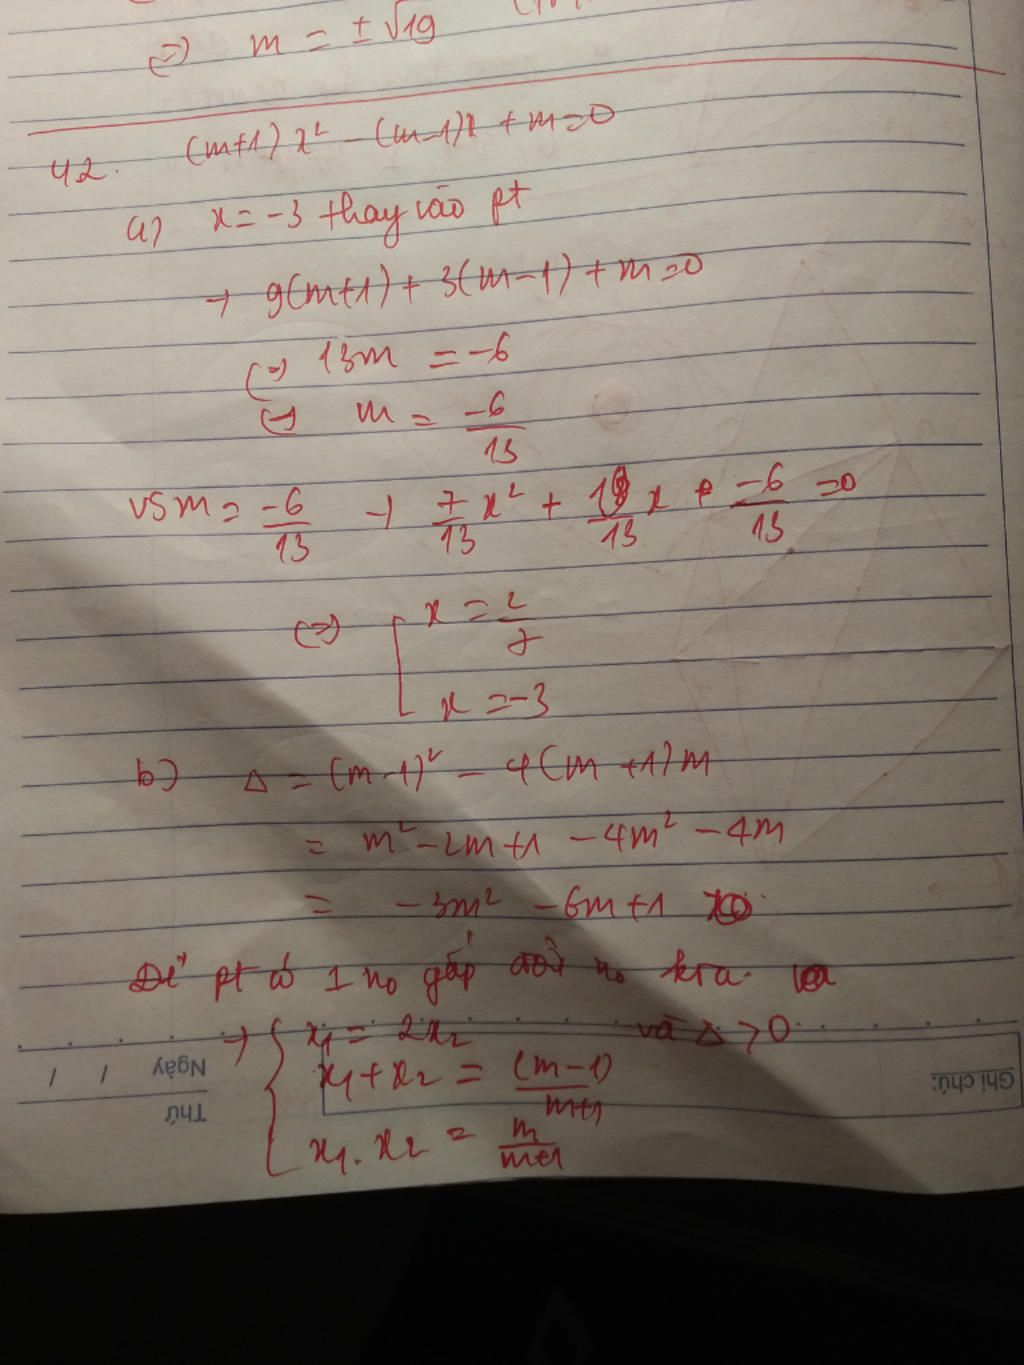 ⇔ m = ±√19
42. (m+1)x² - (m-1)x + m=0
a) x=-3 thay vào pt
→ 9(m+1) + 3(m-1) + m=0
⇔ 13m = -6
⇔ m = -6/13
vs m = -6/13 → 7/13 x² + 19/13 x + -6/13 =0
⇔ [ x = 2/7
x = -3
b) Δ = (m-1)² - 4(m+1)m
= m² - 2m+1 - 4m² - 4m
= -3m² - 6m+1
Để pt có 1 no gấp đôi no kia
→ { x₁ = 2x₂ và Δ > 0
x₁ + x₂ = (m-1)/m+1
x₁. x₂ = m/m+1
Ngày / /
Thứ
Ghi chú: